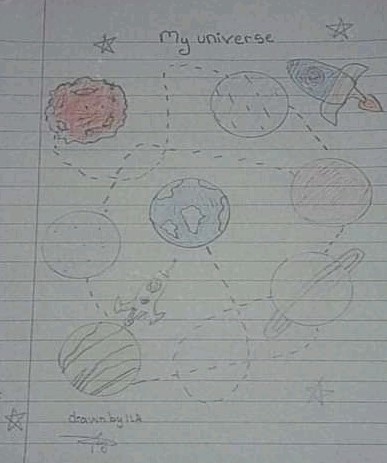 My universe
drawn by ILA